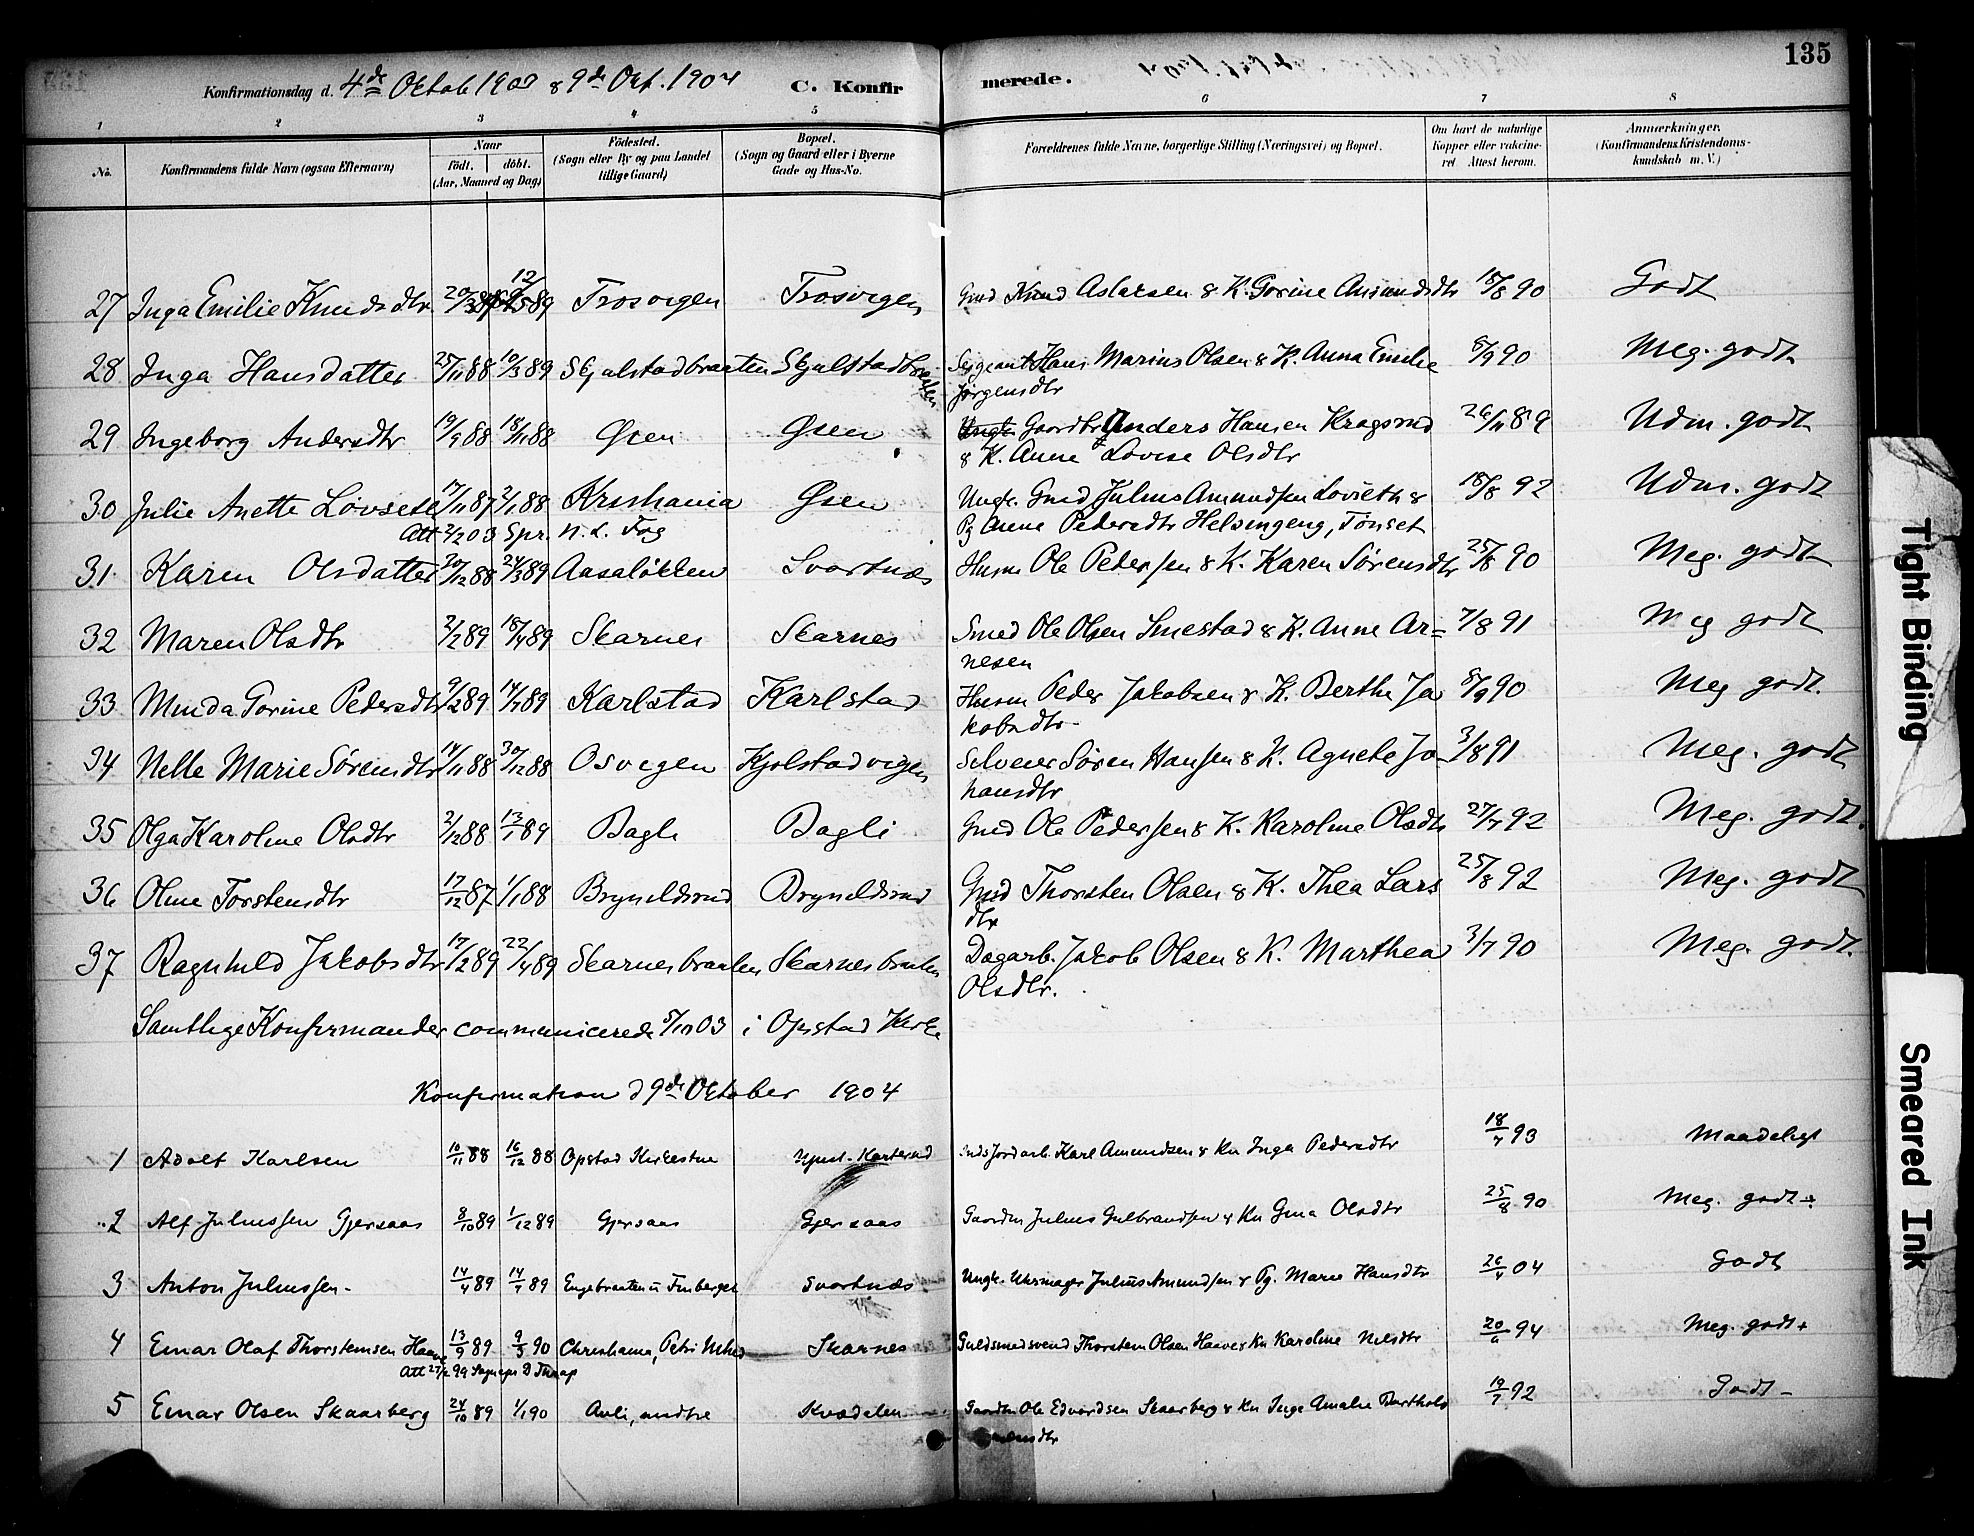 135
Konfirmationsdag d. 4de Oktob 1903 & 9de Okt. 1904 C. Konfirmerede.
1 2 3 4 5 6 7 8
No. Konfirmandens fulde Navn (ogsaa Efternavn) Naar født. døbt. (Aar, Maaned og Dag) Fødested. (Sogn eller By og paa Landet tillige Gaard) Bopæl. (Sogn og Gaard eller i Byerne Gade og Hus-No. Forældrenes fulde Navne, borgerlige Stilling (Næringsvei) og Bopæl. Om havt de naturlige Kopper eller vaccineret Attest herom. Anmærkninger. (Konfirmandens Kristendomskundskab m. V.)
27 Inga Emilie Knudsdtr 12/5 89 Trosvigen Trosvigen Gmd Knud Aslaksen & K. Gorine Amundsdtr 18/8 90 Godt
28 Inga Hansdatter 25/11 88 10/3 89 Skjalstadbraaten Skjalstadbraaten Sergeant Hans Marius Olsen & K. Anna Emilie 8/9 90 Meg. godt
Jørgensdtr
29 Ingeborg Andersdtr 19/9 88 18/11 88 Øien Øien Ungk. Gaardbr Anders Hansen Kragsrud 26/11 89 Udm. godt
& K. Anne Lovise Olsdtr
30 Julie Anette Løvseth 17/11 87 2/1 88 Kristiania Øien Ungk. Gmd Julius Amundsen Lovseth & 18/8 92 Udm. godt
Att 2/2 03 Spr. N. L. Fog Pg Anne Pedersdtr Helsingeng, Tönset
31 Karen Olsdatter 30/12 88 24/3 89 Aasaløkken Svartnæs Husm Ole Pedersen & K. Karen Sørensdtr 25/8 90 Meg. godt
32 Maren Olsdtr 2/2 89 18/4 89 Skarnes Skarnes Smed Ole Olsen Smestad & K. Anne Ar= 7/8 91 Meg godt
nesen
33 Minda Gorine Pedersdtr 9/2 89 14/7 89 Karlstad Karlstad Husm Peder Jakobsen & K. Berthe Ja 8/9 90 Meg godt.
kobsdtr
34 Nelle Marie Sørensdtr 14/11 88 30/12 88 Osvigen Kjølstadvigen Selveier Søren Hansen & K. Agnete Jo 3/8 91 Meg. godt
hansdtr
35 Olga Karoline Olsdtr 2/12 88 13/1 89 Bagli Bagli Gmd Ole Pedersen & K. Karoline Olsdtr 27/7 92 Meg. godt.
36 Oline Torstensdtr 17/12 87 1/1 88 Brynildsrud Brynildsrud Gmd Thorsten Olsen & K. Thea Lars 25/8 92 Meg. godt
dtr
37 Ragnhild Jakobsdtr 17/2 89 22/4 89 Skarnesbraaten Skarnesbraaten Dagarb. Jakob Olsen & K. Marthea 3/7 90 Meg. godt.
Olsdtr.
Samtlige Konfirmander communicerede 5/10 03 i Opstad Kirke
Konfirmation d 9de Oktober 1904
1 Adolf Karlsen 10/11 88 16/12 88 Opstad Kirkestue Karterud Jordarb. Karl Amundsen & Ku Inga Pedersdtr 18/7 93 Maadeligt
2 Alf Juliussen Gjersaas 8/10 89 1/12 89 Gjersaas Gjersaas Gaardm Julius Gulbrandsen & Ku Gina Olsdtr 25/8 90 Meg. godt ÷
3 Anton Juliussen 14/4 89 14/7 89 Engebraaten Svartnæs Ungk. Uhrmager Julius Amundsen & Pg. Marie Hansdtr 26/4 04 Godt
4 Einar Olaf Thorstensen Haave 13/9 89 9/3 90 Christiania, Petri Mhd Skarnes Guldsmedsvend Thorsten Olsen Haave & Ku Karoline Nilsdtr 20/6 94 Meg. godt +
Att 27/2 99 Sognepr D Thrap
5 Einar Olsen Skaarberg 24/10 89 1/1 90 Auli, nedre Kvædalen Gaardm Ole Edvardsen Skaarberg & Ku Inga Amalie Barthold 19/7 92 Godt -